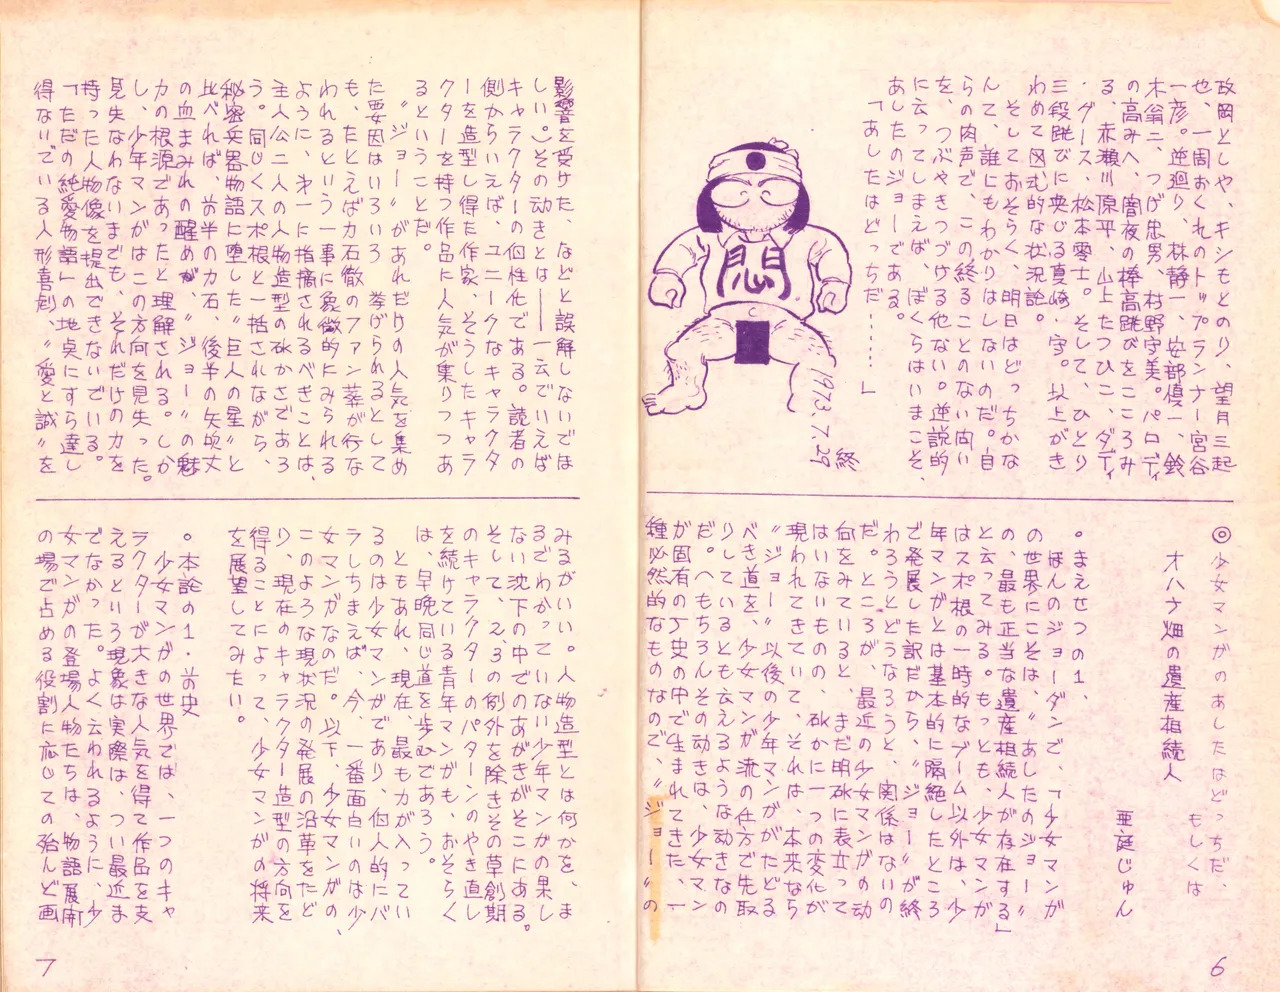 故岡としや、キシもとのり、望月三起
也、一周おくれのトップランナー宮谷
一彦。逆廻り、林静一、安部慎一、鈴
木翁二、つげ忠男、村野守美。パロディ
の高みへ、闇夜の棒高跳びをこころみ
る、赤瀬川原平、山上たつひこ、ダディ
・グース、松本零士。そして、ひとり
三段跳びに興じる真崎・守。以上がき
わめて図式的な状況論。
そしておそらく、明日はどっちかな
んて、誰にもわかりはしないのだ。自
らの肉声で、この終ることのない問い
を、つぶやきつづける他ない。逆説的
に云ってしまえば、ぼくらはいまこそ、
あしたのジョーである。
「あしたはどっちだ………」
悶
1973.7.29
終
◎少女マンガのあしたはどっちだ、
もしくは
オハナ畑の遺産相続人
亜庭じゅん
・まえせつの1、
ほんのジョーダンで、「少女マンガ
の世界にこそは、〝あしたのジョー〟
の、最も正当な遺産相続人が存在する」
と云ってみる。もっとも、少女マンガ
はスポ根の一時的なブーム以外は、少
年マンガとは基本的に隔絶したところ
で発展した訳だから、〝ジョー〟が終
わろうとどうなろうと、関係はないの
だ。ところが、最近の少女マンガの動
向をみていると、まだ明砿に表立って
はいないものの、砿かに一つの変化が
現われてきていて、それは、本来なら
〝ジョー〟以後の少年マンガがたどる
べき道を、少女マンガが流の仕方で先取
りしているとも云えるような動きなの
だ。へもちろんその動きは、少女マン
ガ固有の歴史の中で生まれてきた、一
種必然的なものなので、〝ジョー〟の
6
影響を受けた、などと誤解しないでほ
しい。)その動きとは――一云でいえば
キャラクターの個性化である。読者の
側からいえば、ユニークなキャラクタ
ーを造型し得た作家、そうしたキャラ
クターを持つ作品に人気が集りつつあ
るということだ。
〝ジョー〟があれだけの人気を集め
た要因はいろいろ挙げられるとして
も、たとえば力石徹のファン葬が行な
われるという一事に象徴的にみられる
ように、才一に指摘されるべきことは、
主人公二人の人物造型の砿かさであろ
う。同じくスポ根と一括されながら、
秘密兵器物語に堕した〝巨人の星〟と
比べれば、前半の力石、後半の矢吹丈
の血まみれの醒めが、〝ジョー〟の魅
力の根源であったと理解される。しか
し、少年マンガはこの方向を見失った。
見失なわないまでも、それだけの力を
持った人物像を提出できないでいる。
「ただの純愛物語」の地点にすら達し
得ないでいる人形喜劇、〝愛と誠〟を
みるがいい。人物造型とは何かを、ま
るでわかっていない少年マンガの果し
ない沈下の中でのあがきがそこにある。
そして、2、3の例外を除きその草創期
のキャラクターのパターンのやき直し
を続けている青年マンガも、おそらく
は、早晩同じ道を歩むであろう。
ともあれ、現在、最も力が入ってい
るのは少女マンガであり、個人的にバ
ラしちまえば、今、一番面白いのは少
女マンガなのだ。以下、少女マンガの、
このような現状況の発展の沿革をたど
り、現在のキャラクター造型の方向を
得ることによって、少女マンガの将来
を展望してみたい。
・本論の1・前史
少女マンガの世界では、一つのキャ
ラクターが大きな人気を得て作品を支
えるという現象は実際は、つい最近ま
でなかった。よく云われるように、少
女マンガの登場人物たちは、物語展開
の場で占める役割に応じての殆んど画
7